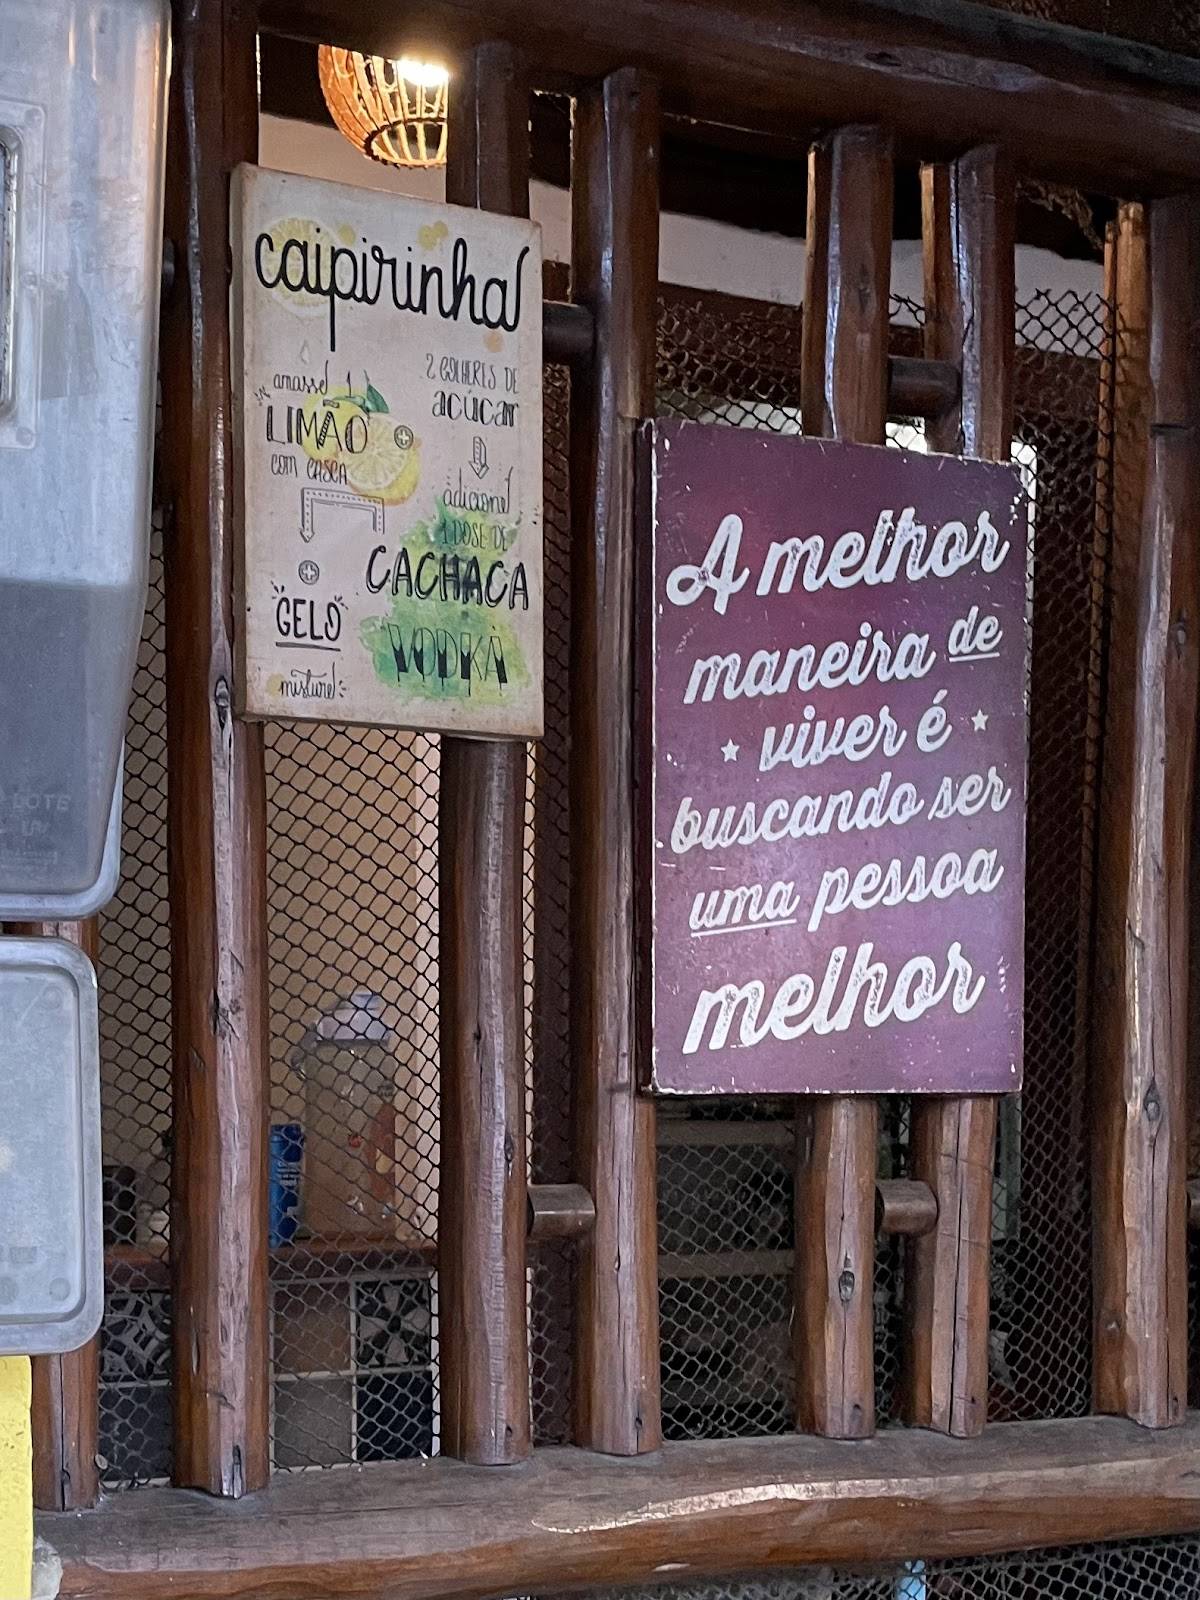 caipirinha
amasse 1
LIMÃO
com casca
GELO
misture!
2 COLHERES DE
açúcar
adicione
1 DOSE DE
CACHAÇA
VODKA
A melhor
maneira de
viver é
buscando ser
uma pessoa
melhor